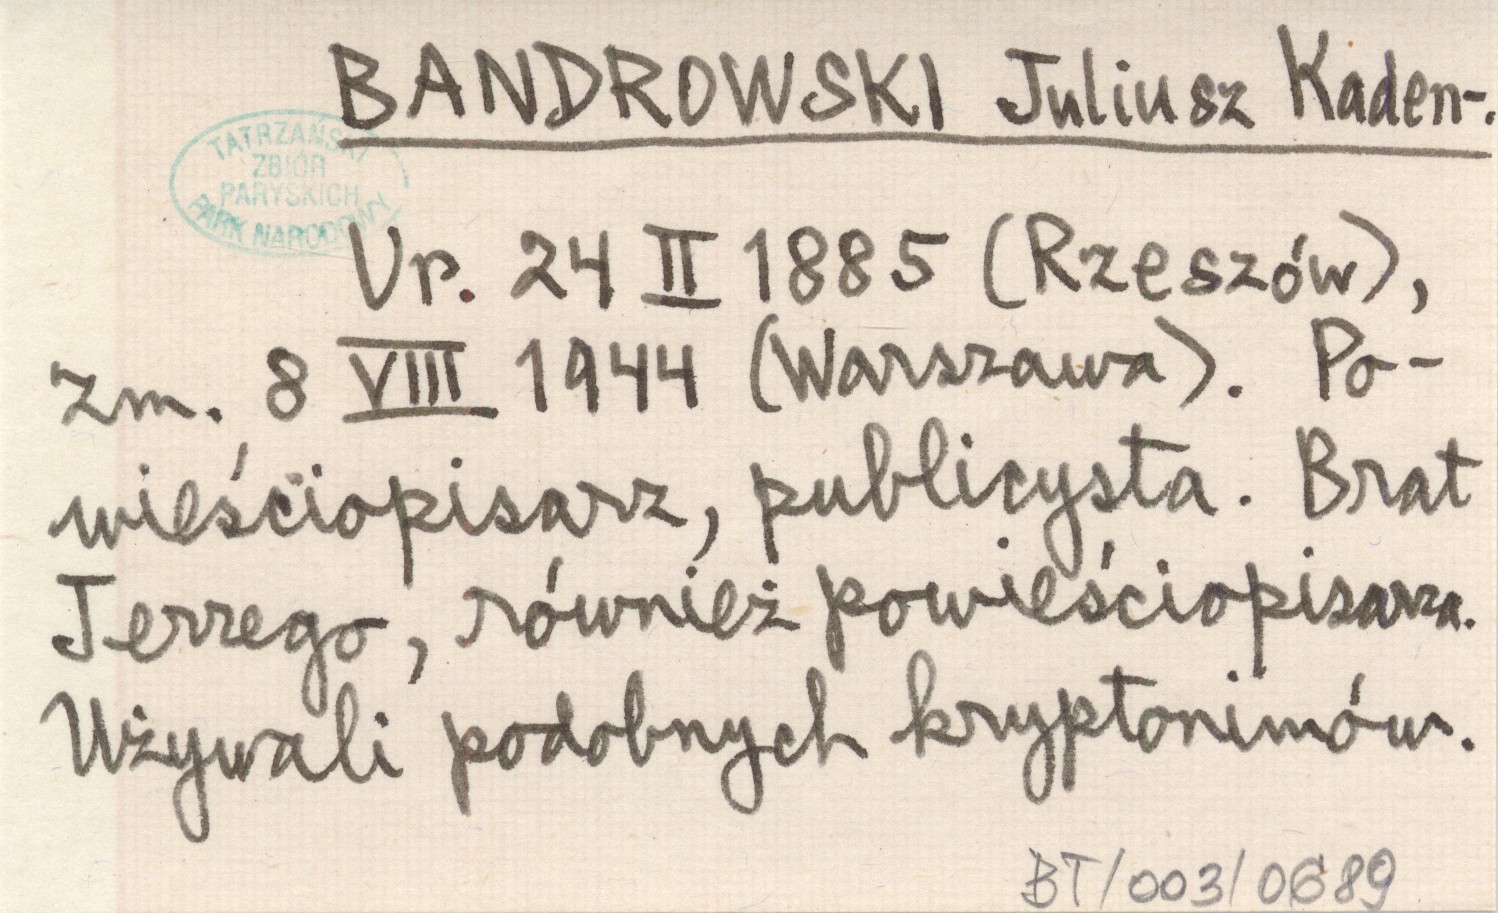 BANDROWSKI Juliusz Kaden-.
TATRZAŃSKI
ZBIÓR
PARYSKICH
PARK NARODOWY
Ur. 24 II 1885 (Rzeszów),
zm. 8 VIII 1944 (Warszawa). Po-
wieściopisarz, publicysta. Brat
Jerzego, również powieściopisarza.
Używali podobnych kryptonimów.
BT/003/0689